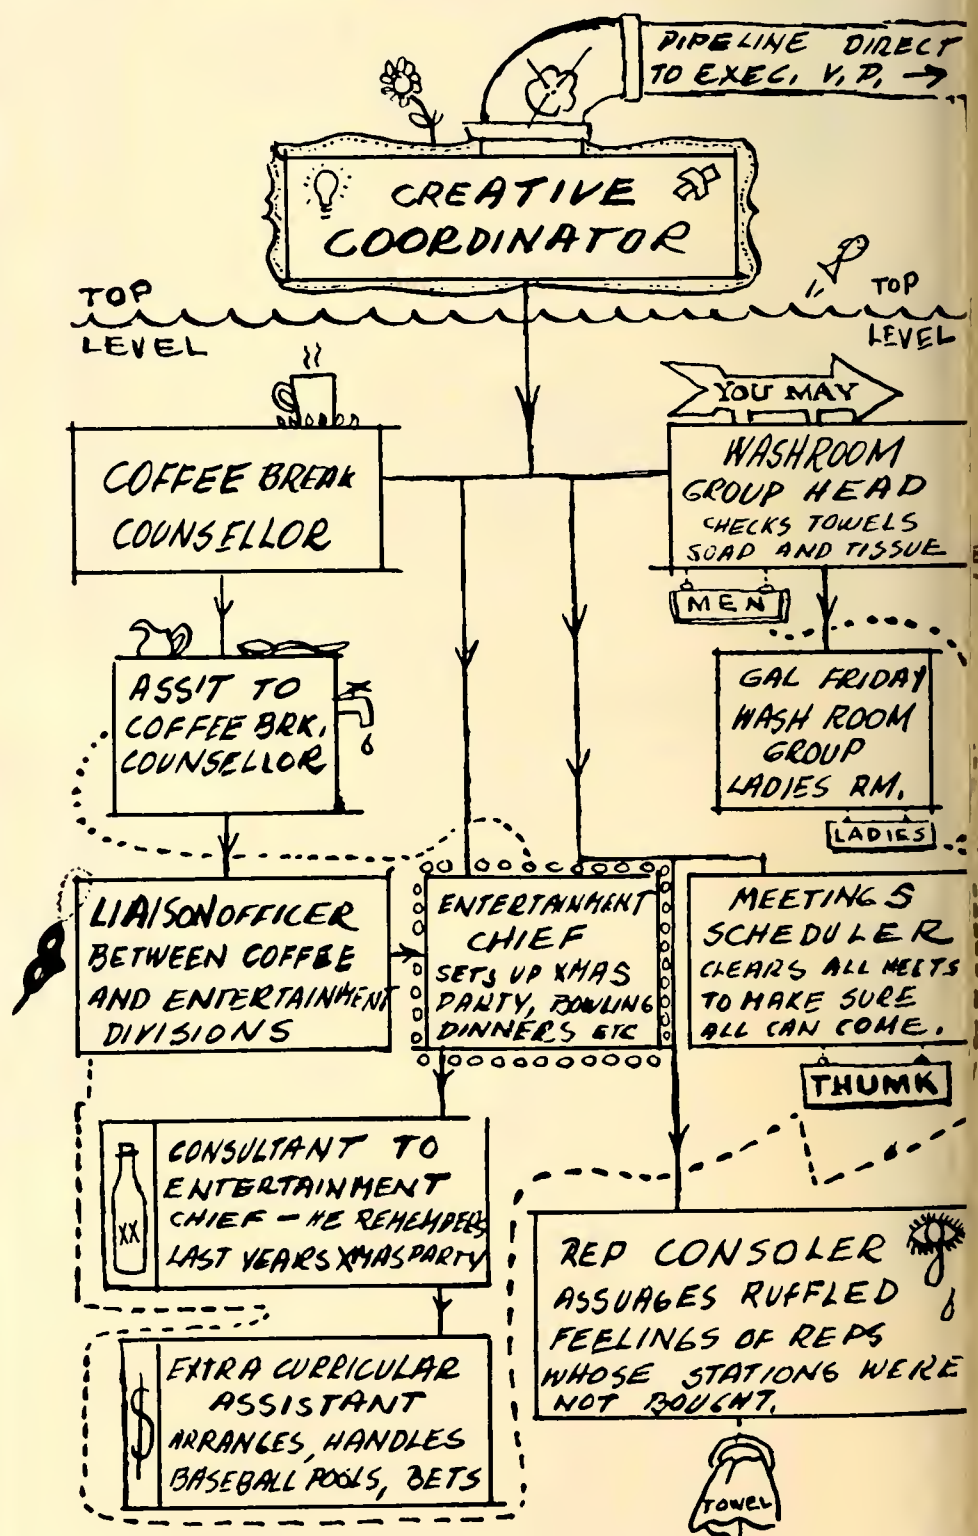 PIPELINE DIRECT
TO EXEC. V.P. →
CREATIVE
COORDINATOR
TOP
LEVEL
TOP
LEVEL
YOU MAY
COFFEE BREAK
COUNSELLOR
WASHROOM
GROUP HEAD
CHECKS TOWELS
SOAP AND TISSUE
MEN
ASS'T TO
COFFEE BRK.
COUNSELLOR
GAL FRIDAY
WASH ROOM
GROUP
LADIES RM.
LADIES
LIAISON OFFICER
BETWEEN COFFEE
AND ENTERTAINMENT
DIVISIONS
ENTERTAINMENT
CHIEF
SETS UP XMAS
PARTY, BOWLING
DINNERS ETC
MEETINGS
SCHEDULER
CLEARS ALL MEETS
TO MAKE SURE
ALL CAN COME.
THUMK
XX
CONSULTANT TO
ENTERTAINMENT
CHIEF - HE REMEMBERS
LAST YEARS XMAS PARTY
REP CONSOLER
ASSUAGES RUFFLED
FEELINGS OF REPS
WHOSE STATIONS WERE
NOT BOUGHT.
$
EXTRA CURRICULAR
ASSISTANT
ARRANGES, HANDLES
BASEBALL POOLS, BETS
TOWEL